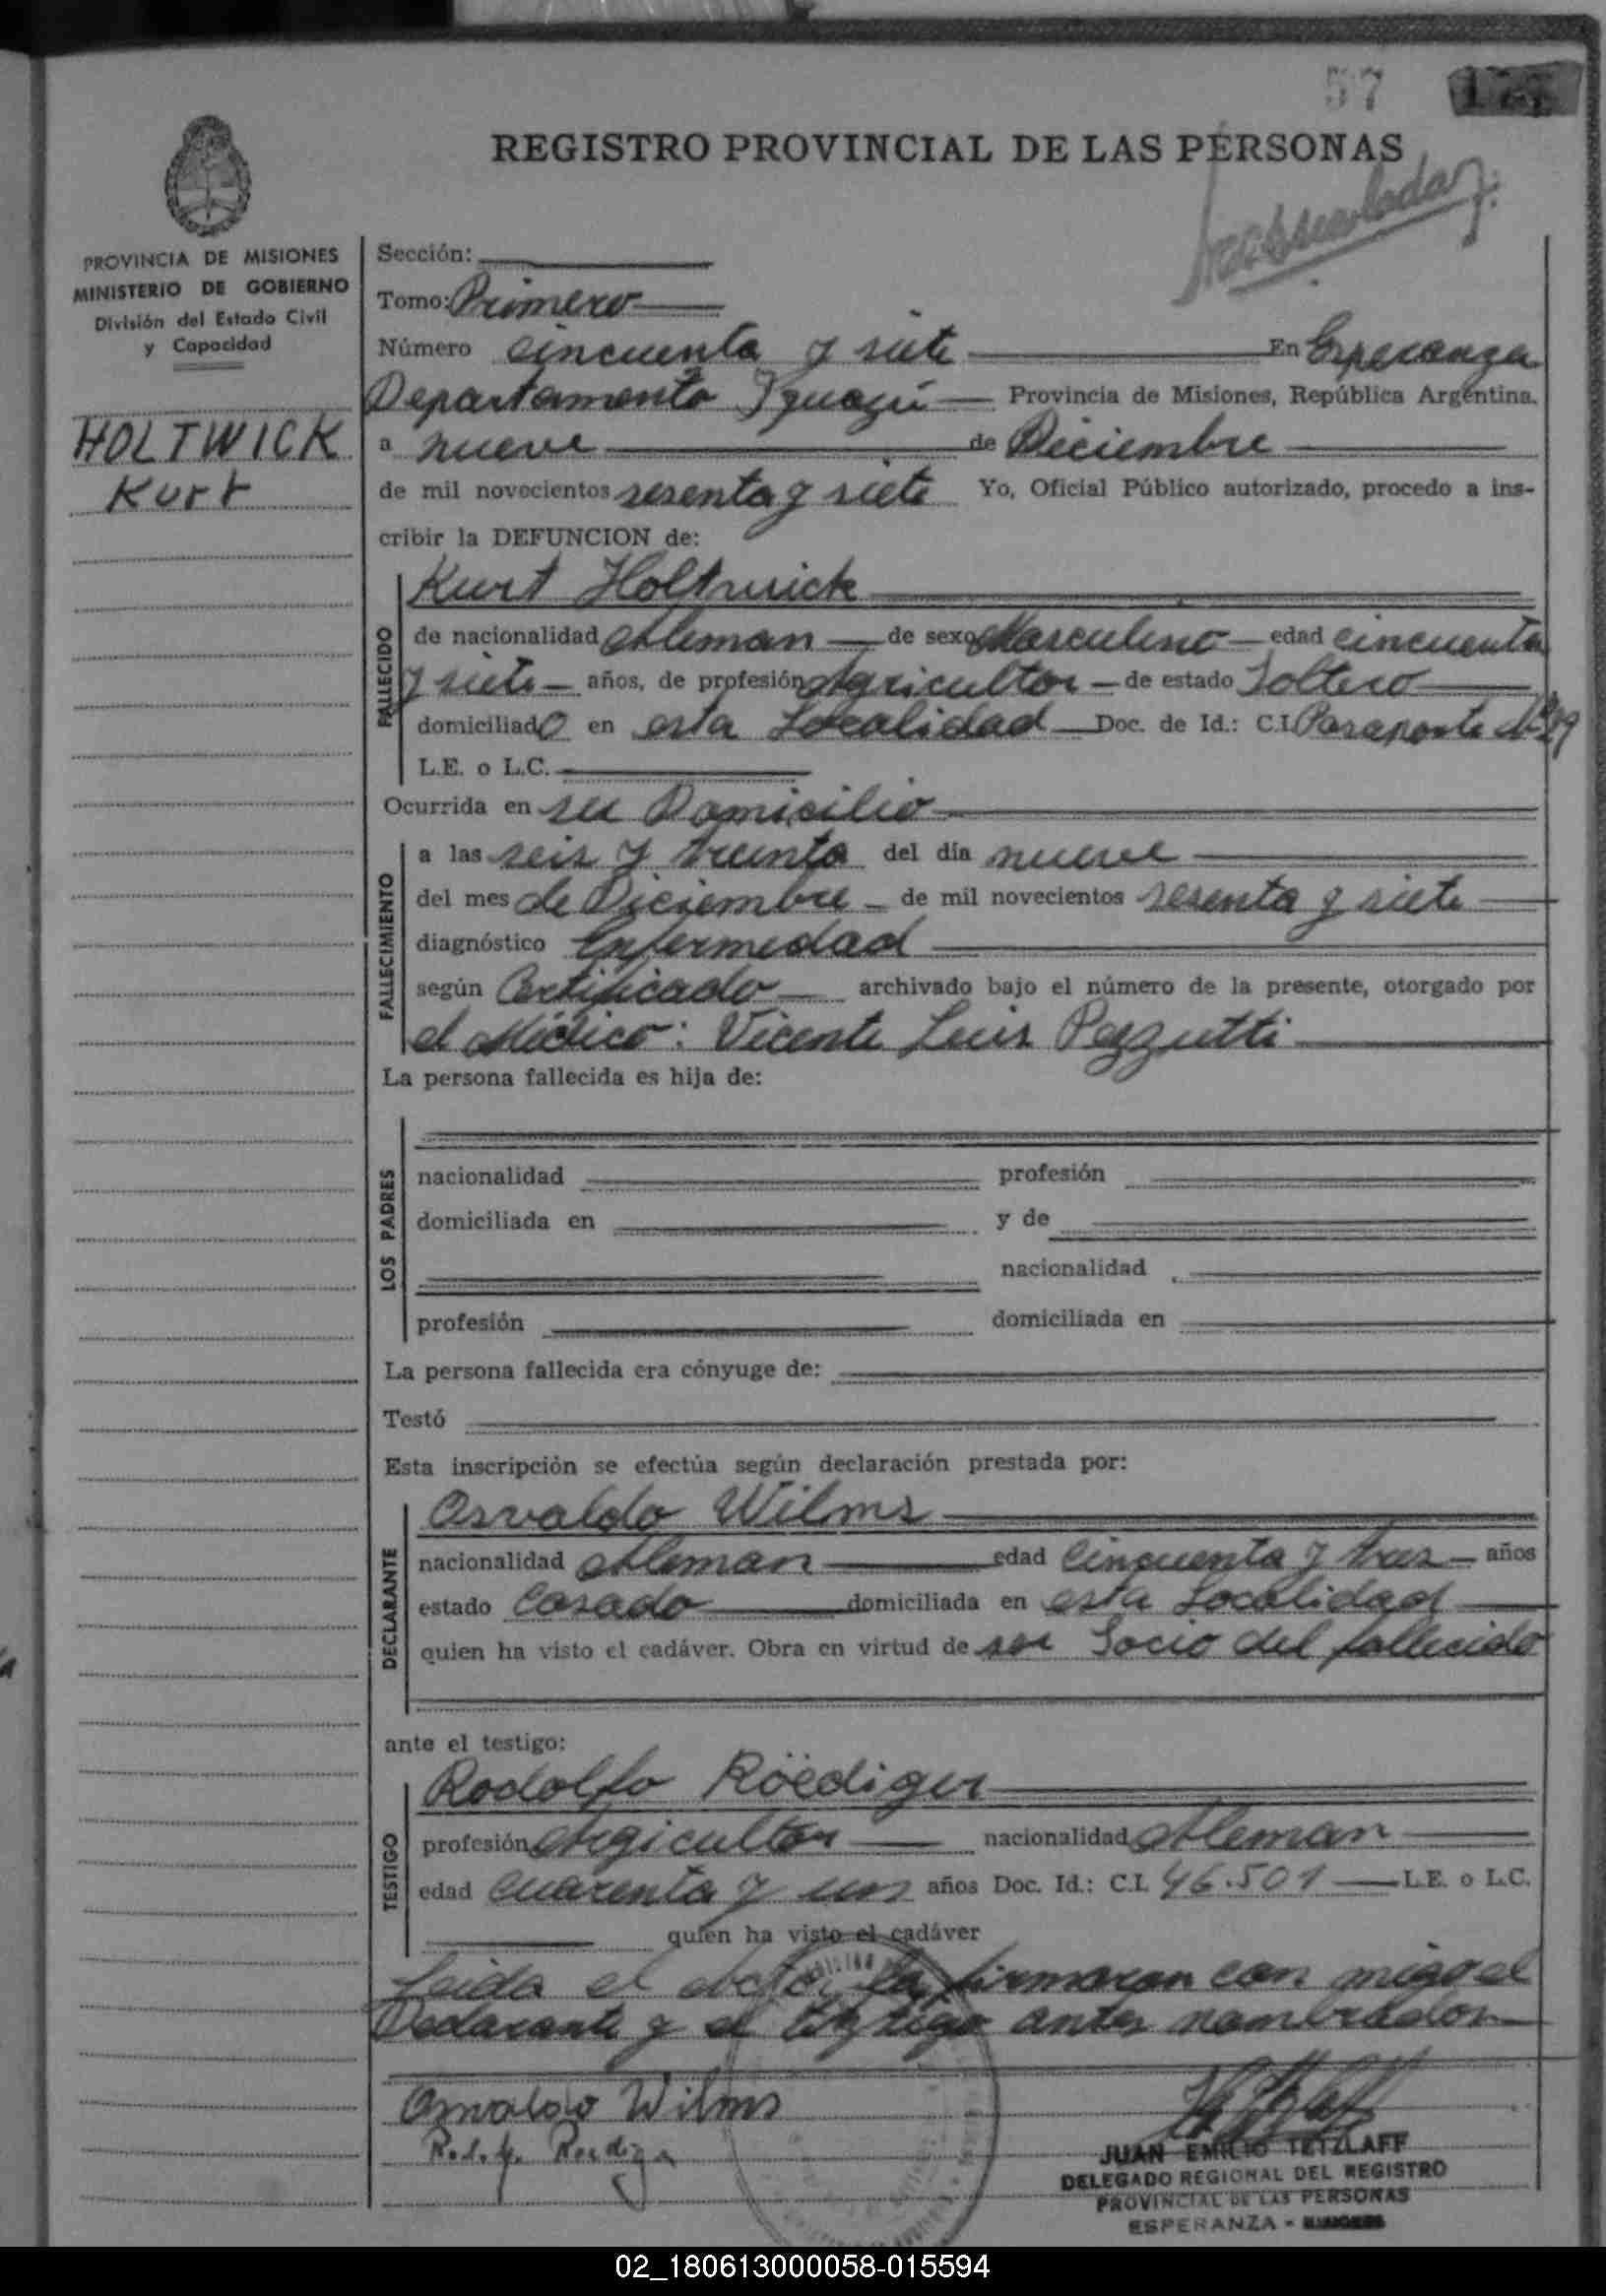 57
REGISTRO PROVINCIAL DE LAS PERSONAS
PROVINCIA DE MISIONES
MINISTERIO DE GOBIERNO
División del Estado Civil
y Capacidad
HOLTWICK
Kurt
Sección:
Tomo: Primero
Número cincuenta y siete En Esperanza
Departamento Iguazú Provincia de Misiones, República Argentina.
a nueve de Diciembre
de mil novecientos sesenta y siete Yo, Oficial Público autorizado, procedo a ins-
cribir la DEFUNCION de:
FALLECIDO
Kurt Holtwick
de nacionalidad Aleman de sexo Masculino edad cincuenta
y siete años, de profesión Agricultor de estado Soltero
domiciliado en esta Localidad Doc. de Id.: C.I. Pasaporte Nº 29
L.E. o L.C.
Ocurrida en su Domicilio
FALLECIMIENTO
a las seis y treinta del día nueve
del mes de Diciembre de mil novecientos sesenta y siete
diagnóstico Enfermedad
según Certificado archivado bajo el número de la presente, otorgado por
el Médico: Vicente Luis Pezzutti
La persona fallecida es hija de:
LOS PADRES
nacionalidad profesión
domiciliada en y de
nacionalidad
profesión domiciliada en
La persona fallecida era cónyuge de:
Testó
Esta inscripción se efectúa según declaración prestada por:
DECLARANTE
Osvaldo Wilms
nacionalidad Aleman edad Cincuenta y tres años
estado Casado domiciliada en esta Localidad
quien ha visto el cadáver. Obra en virtud de ser Socio del fallecido
ante el testigo:
TESTIGO
Rodolfo Röediger
profesión Argicultor nacionalidad Aleman
edad cuarenta y un años Doc. Id.: C.I. 46.501 L.E. o L.C.
quien ha visto el cadáver
Leida el acta, la firmaron con migo el
Declarante y el testigo antes nombrados
Osvaldo Wilms
JUAN EMILIO TETZLAFF
DELEGADO REGIONAL DEL REGISTRO
PROVINCIAL DE LAS PERSONAS
ESPERANZA - MISIONES
02_180613000058-015594